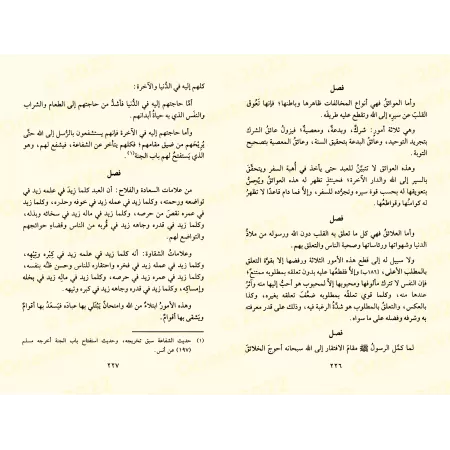 فصل
وأما العوائقُ فهي أنواع المخالفات ظاهرها وباطنها؛ فإنها تَعُوق
القلب عن سيره إلى الله وتقطع عليه طريقَه.
وهي ثلاثة أمور: شركٌ، وبدعةٌ، ومعصيةٌ؛ فيزول عائقُ الشرك
بتجريد التوحيد، وعائقُ البدعة بتحقيق السنة، وعائقُ المعصية بتصحيح
التوبة.
وهذه العوائق لا تتبيَّنُ للعبد حتى يأخذ في أُهبة السفر ويتحقَّق
بالسير إلى الله والدار الآخرة؛ فحينئذٍ تظهر له هذه العوائقُ ويُحِسُّ
بتعويقها له بحسب قوة سيره وتجرُّده للسفر، وإلَّا فما دام قاعدًا لا تظهرُ
له كوامنُها وقواطعُها.
فصل
وأما العلائقُ فهي كل ما تعلق به القلب دون الله ورسوله من ملاذِّ
الدنيا وشهواتها ورياساتها وصحبة الناس والتعلق بهم.
ولا سبيل له إلى قطع هذه الأمور الثلاثة ورفضها إلا بقوَّة التعلق
بالمطلب الأعلى، وإلَّا فقطعُها عليه بدون تعلقه بمطلوبه ممتنعٌ؛
فإن النفس لا تترك مألوفها ومحبوبها إلَّا لمحبوب هو أحبُّ إليها منه وآثرُ
عندها منه، وكلما قوي تعلقُه بمطلوبه ضعُفَ تعلقُه بغيره، وكذا
بالعكس، والتعلق بالمطلوب هو شدَّة الرغبة فيه، وذلك على قدر معرفته
به وشرفه وفضله على ما سواه.
فصل
لما كمَّل الرسولُ ﷺ مقامَ الافتقار إلى الله سبحانه أحوجَ الخلائقَ
٢٢٦
كلهم إليه في الدُّنيا والآخرة:
أمَّا حاجتهم إليه في الدُّنيا فأشدُّ من حاجتهم إلى الطعام والشراب
والنَّفَس الذي به حياةُ أبدانهم.
وأما حاجتهم إليه في الآخرة فإنهم يستشفعون بالرُّسل إلى الله حتَّى
يُريحَهم من ضيق مقامهم؛ فكلهم يتأخر عن الشفاعة، فيشفع لهم، وهو
الذي يَستفتحُ لهم باب الجنة(١).
فصل
من علامات السعادة والفلاح: أن العبد كلما زيدَ في علمه زيد في
تواضعه ورحمته، وكلما زيد في عمله زيد في خوفه وحذره، وكلما زيد
في عمره نقصَ من حرصه، وكلما زيد في ماله زيد في سخائه وبذله،
وكلما زيد في قدره وجاهه زيد في قُربه من الناس وقضاء حوائجهم
والتواضع لهم.
وعلاماتُ الشقاوة: أنه كلما زيد في علمه زيد في كِبْره وتِيْهِه،
وكلما زيد في عمله زيد في فخره واحتقاره للناس وحسن ظنِّه بنفسه،
وكلما زيد في عمره زيد في حرصه، وكلما زيد في ماله زيد في بخله
وإمساكه، وكلما زيد في قدره وجاهه زيد في كبره وتيهه.
وهذه الأمورُ ابتلاءٌ من الله وامتحانٌ يَبْتَلي بها عبادَه فيَسعَدُ بها أقوامٌ
ويَشقى بها أقوامٌ.
(١) حديث الشفاعة سبق تخريجه، وحديث استفتاح باب الجنة أخرجه مسلم
(١٩٧) عن أنس.
٢٢٧